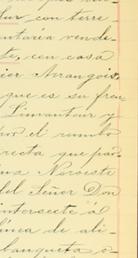 lur con terre
untaria vendi-
te, con casa
ier Arrangois,
que es su fren
Limantour y
por el rumbo
recta que par-
una Noroeste
del Señor Don
intersecte á
linea de ali-
banqueta o